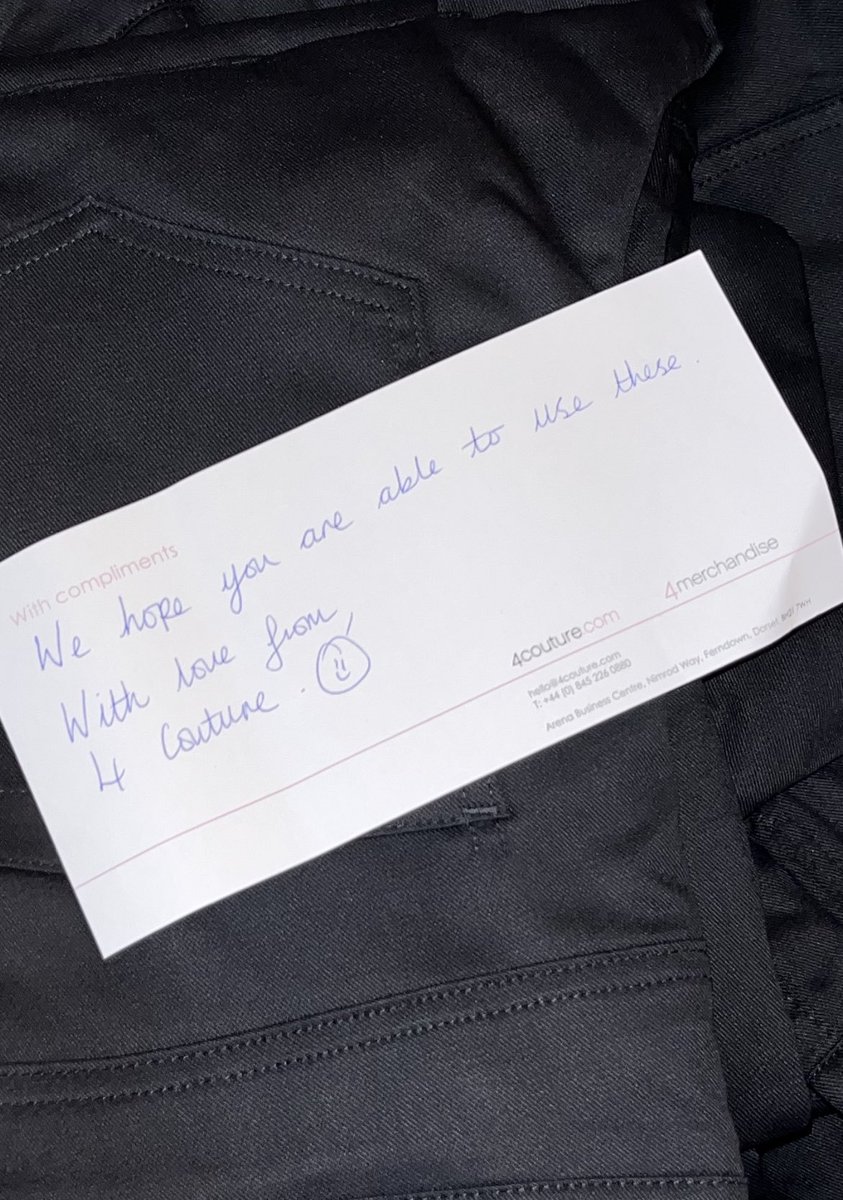 With compliments
We hope you are able to use these.
With love from,
4 Couture.
4couture.com
4merchandise
hello@4couture.com
T: +44 (0) 845 226 0880
Arena Business Centre, Nimrod Way, Ferndown, Dorset BH21 7WH